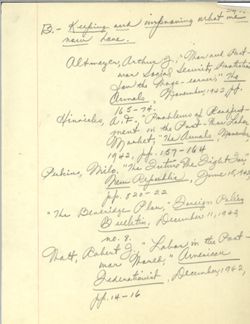 B. - Keeping and improving what we
now have.
Altmeyer, Arthur J., "War and Post-
war Social Security Protection
for the Wage-earners", The
Annals, November, 1942, pp.
165-74.
Hinrichs, A. F., "Problems of Reemploy-
ment in the Post-War Labor
Market," The Annals, November
1942, pp. 157-164
Perkins, Milo, "The Future We Fight For,"
New Republic, June 15, 1942,
pp. 820-22
"The Beveridge Plan," Foreign Policy
Bulletin, December 11, 1942
no. 8.
Watt, Robert J., "Labor in the Post-
war World," American
Federationist, December, 1942,
pp. 14-16